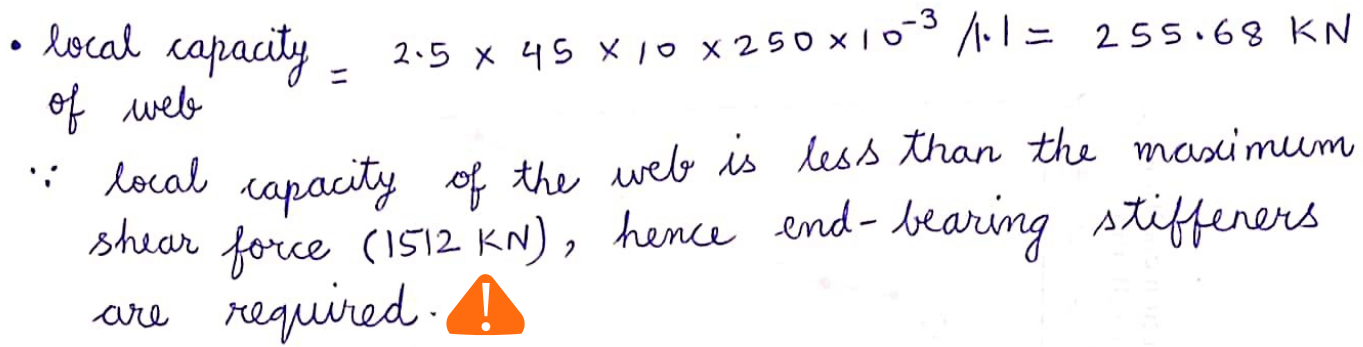 • local capacity = 2.5 × 45 × 10 × 250 × 10⁻³ /1.1 = 255.68 KN
of web
∵ local capacity of the web is less than the maximum
shear force (1512 KN), hence end-bearing stiffeners
are required.